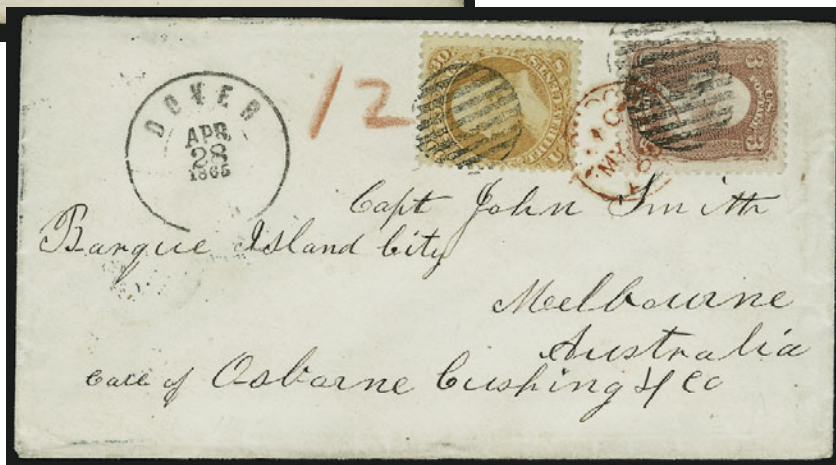 DOVER
APR
28
1865
12
3 3
U.S.
Capt John Smith
Barque Island City
Melbourne
Australia
Care of Osborne Cushing & Co